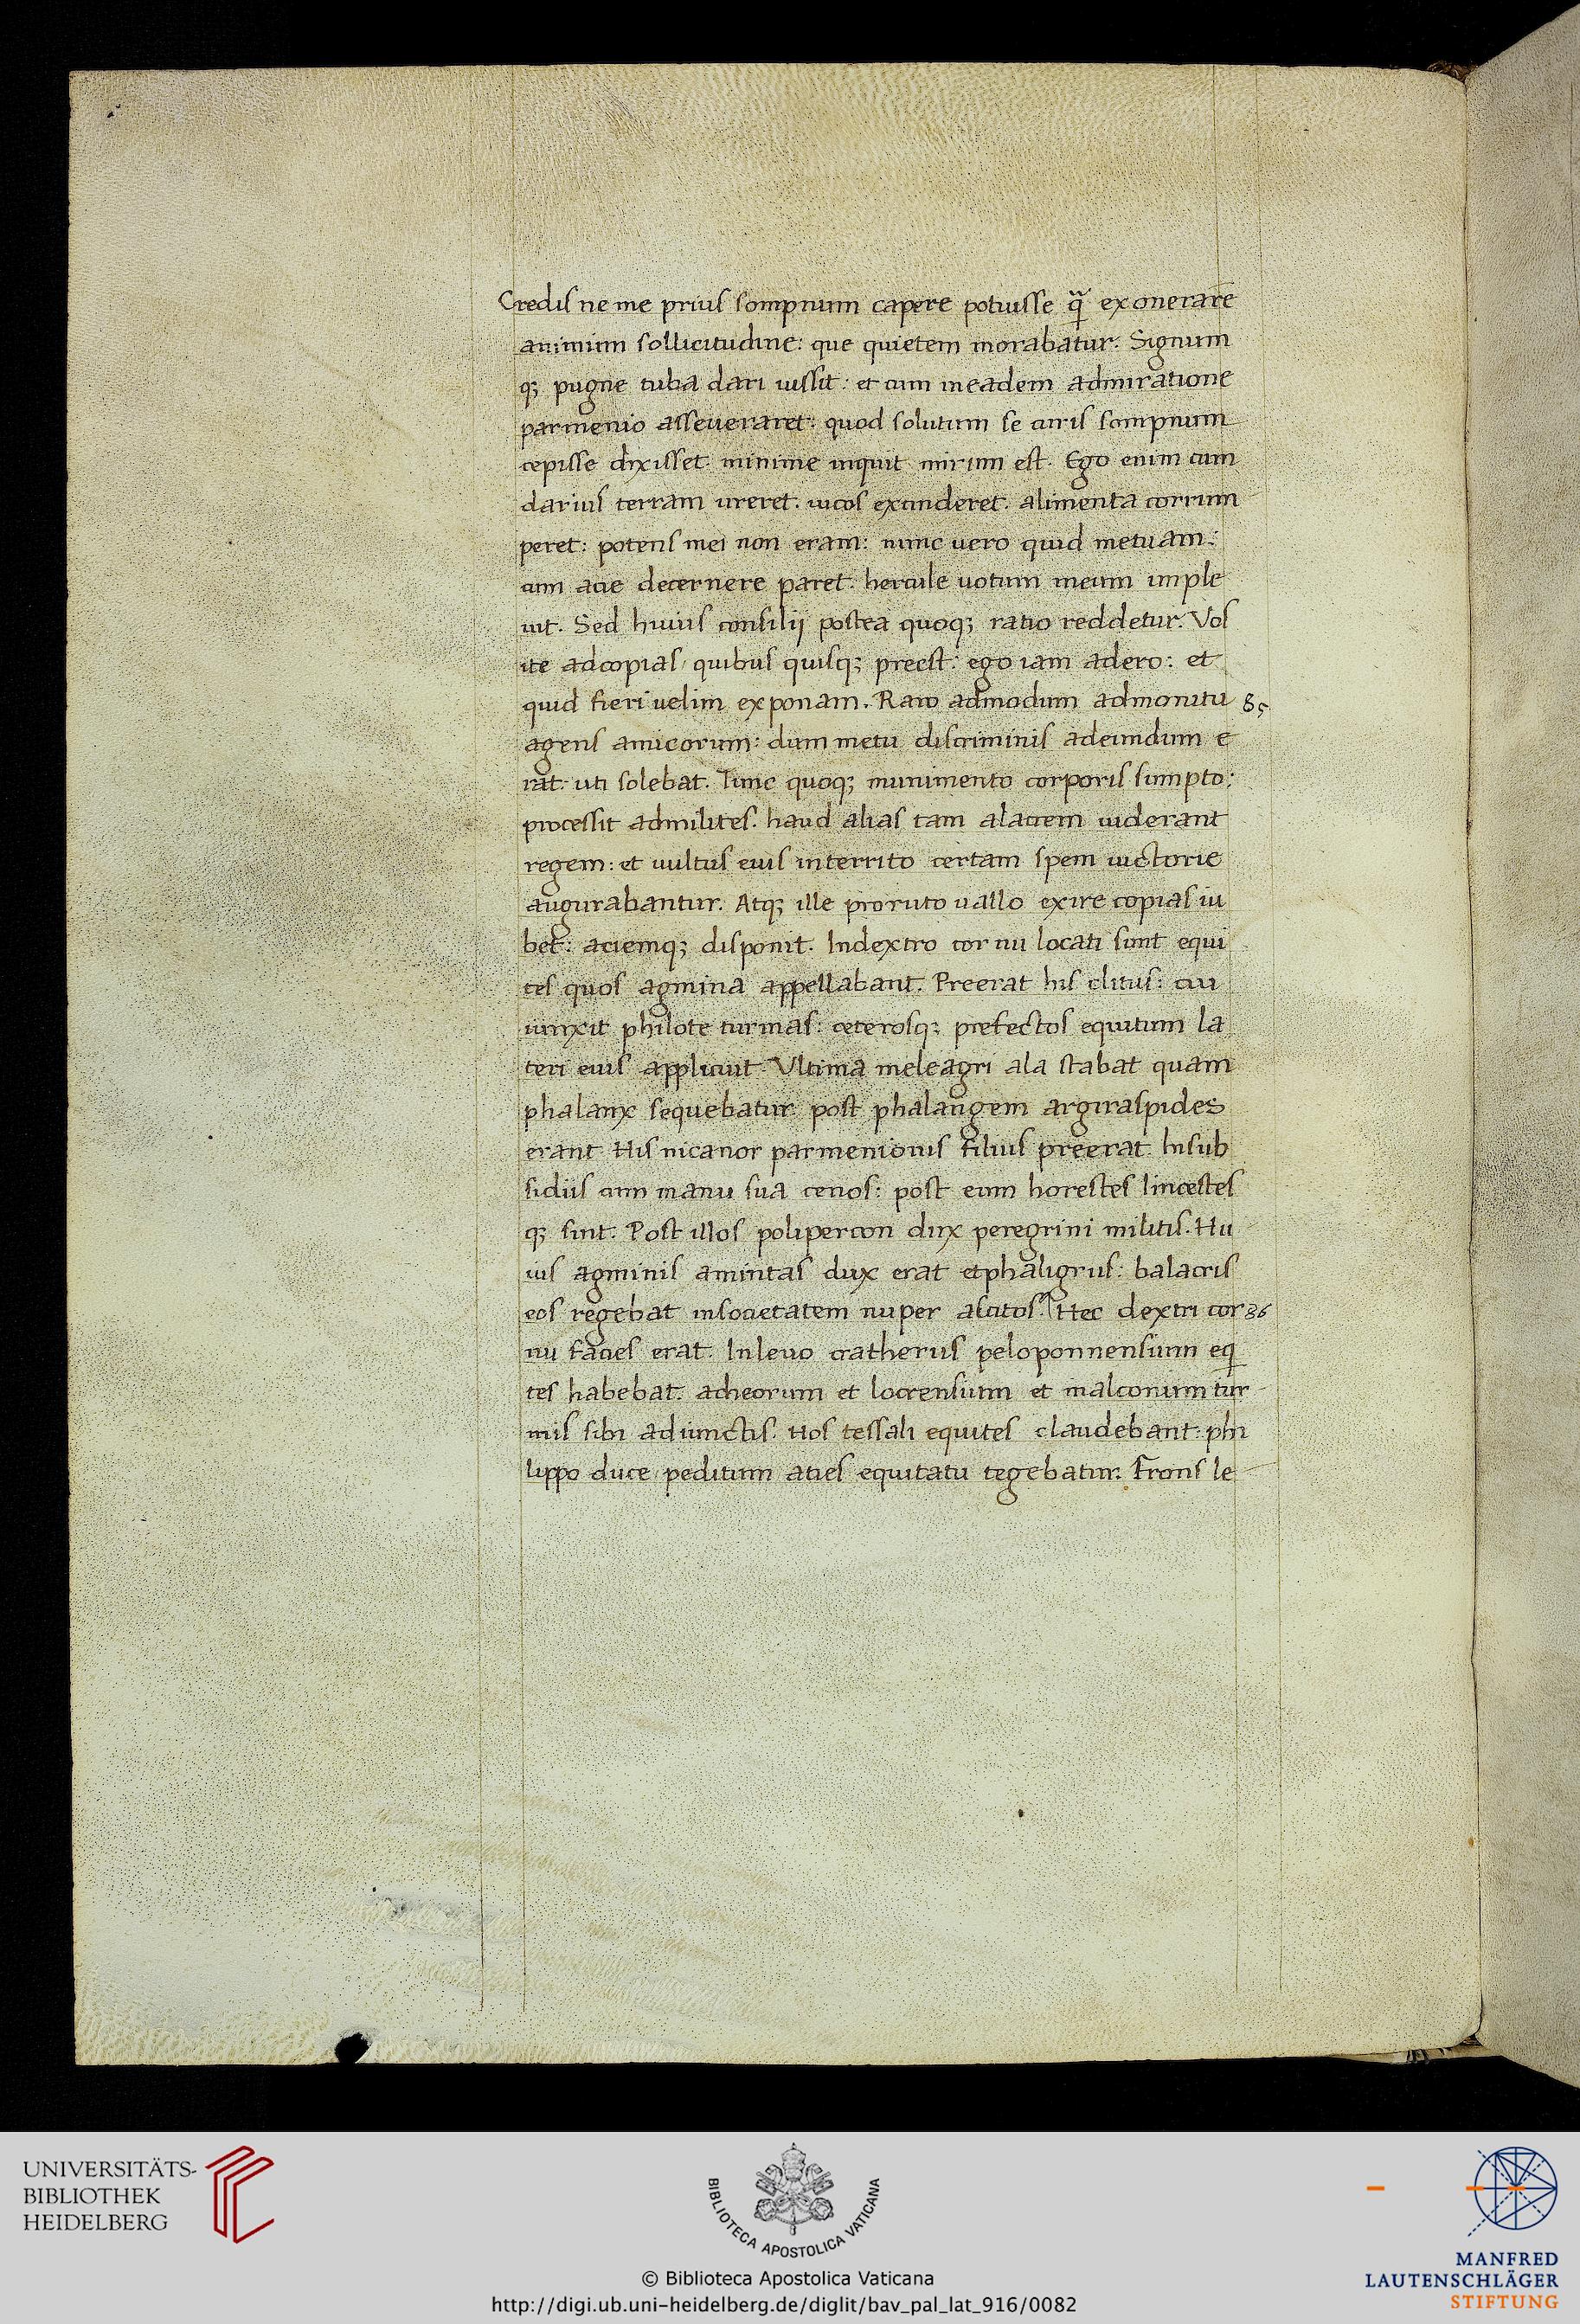 Credis ne me prius sompnum capere potuisse q̃ exonerare
animum sollicitudine: que quietem morabatur. Signum
q; pugne tuba dari iussit: et cum ineadem admiratione
parmenio asseueraret: quod solutum se curis sompnum
cepisse dixisset. minime inquit mirum est. Ego enim cum
darius terram ureret. uicos excinderet. alimenta corrum
peret: potens mei non eram: nunc uero quid metuam:
cum acie decernere paret. hercule uotum meum imple
uit. Sed huius consilij postea quoq; ratio reddetur. Vos
ite adcopias quibus quisq; preest: ego iam adero: et
quid fieri uelim exponam. Raro admodum admonitu 85
agens amicorum: dum metu discriminis adeundum e
rat: uti solebat. Tunc quoq; munimento corporis sumpto:
processit admilites. haud alias tam alacrem uiderant
regem: et uultus eius interrito certam spem uictorie
augurabantur. Atq; ille proruto uallo exire copias iu
bet: aciemq; disponit. Indextro cornu locati sunt equi
tes quos agmina appellabant. Preerat his clitus: cui
iunxit philote turmas: ceterosq; prefectos equitum la
teri eius applicuit. Vltima meleagri ala stabat quam
phalanx sequebatur post phalangem argiraspides
erant. His nicanor parmenionis filius preerat. Insub
sidiis cum manu sua cenos: post eum horestes lincestes
q; sunt. Post illos polipercon dux peregrini militis. Hu
ius agminis amintas dux erat etphaligrus: balacris
eos regebat insocietatem nuper ascitos. Hec dextri cor 86
nu facies erat. Inleuo cratherus peloponnensium eq
tes habebat. acheorum et locrensium et malconum tur
mis sibi adiunctis. Hos tessali equites claudebant: phi
lippo duce peditum acies equitatu tegebatur. Frons le
UNIVERSITÄTS-
BIBLIOTHEK
HEIDELBERG
BIBLIOTECA APOSTOLICA VATICANA
© Biblioteca Apostolica Vaticana
http://digi.ub.uni-heidelberg.de/diglit/bav_pal_lat_916/0082
MANFRED
LAUTENSCHLÄGER
STIFTUNG